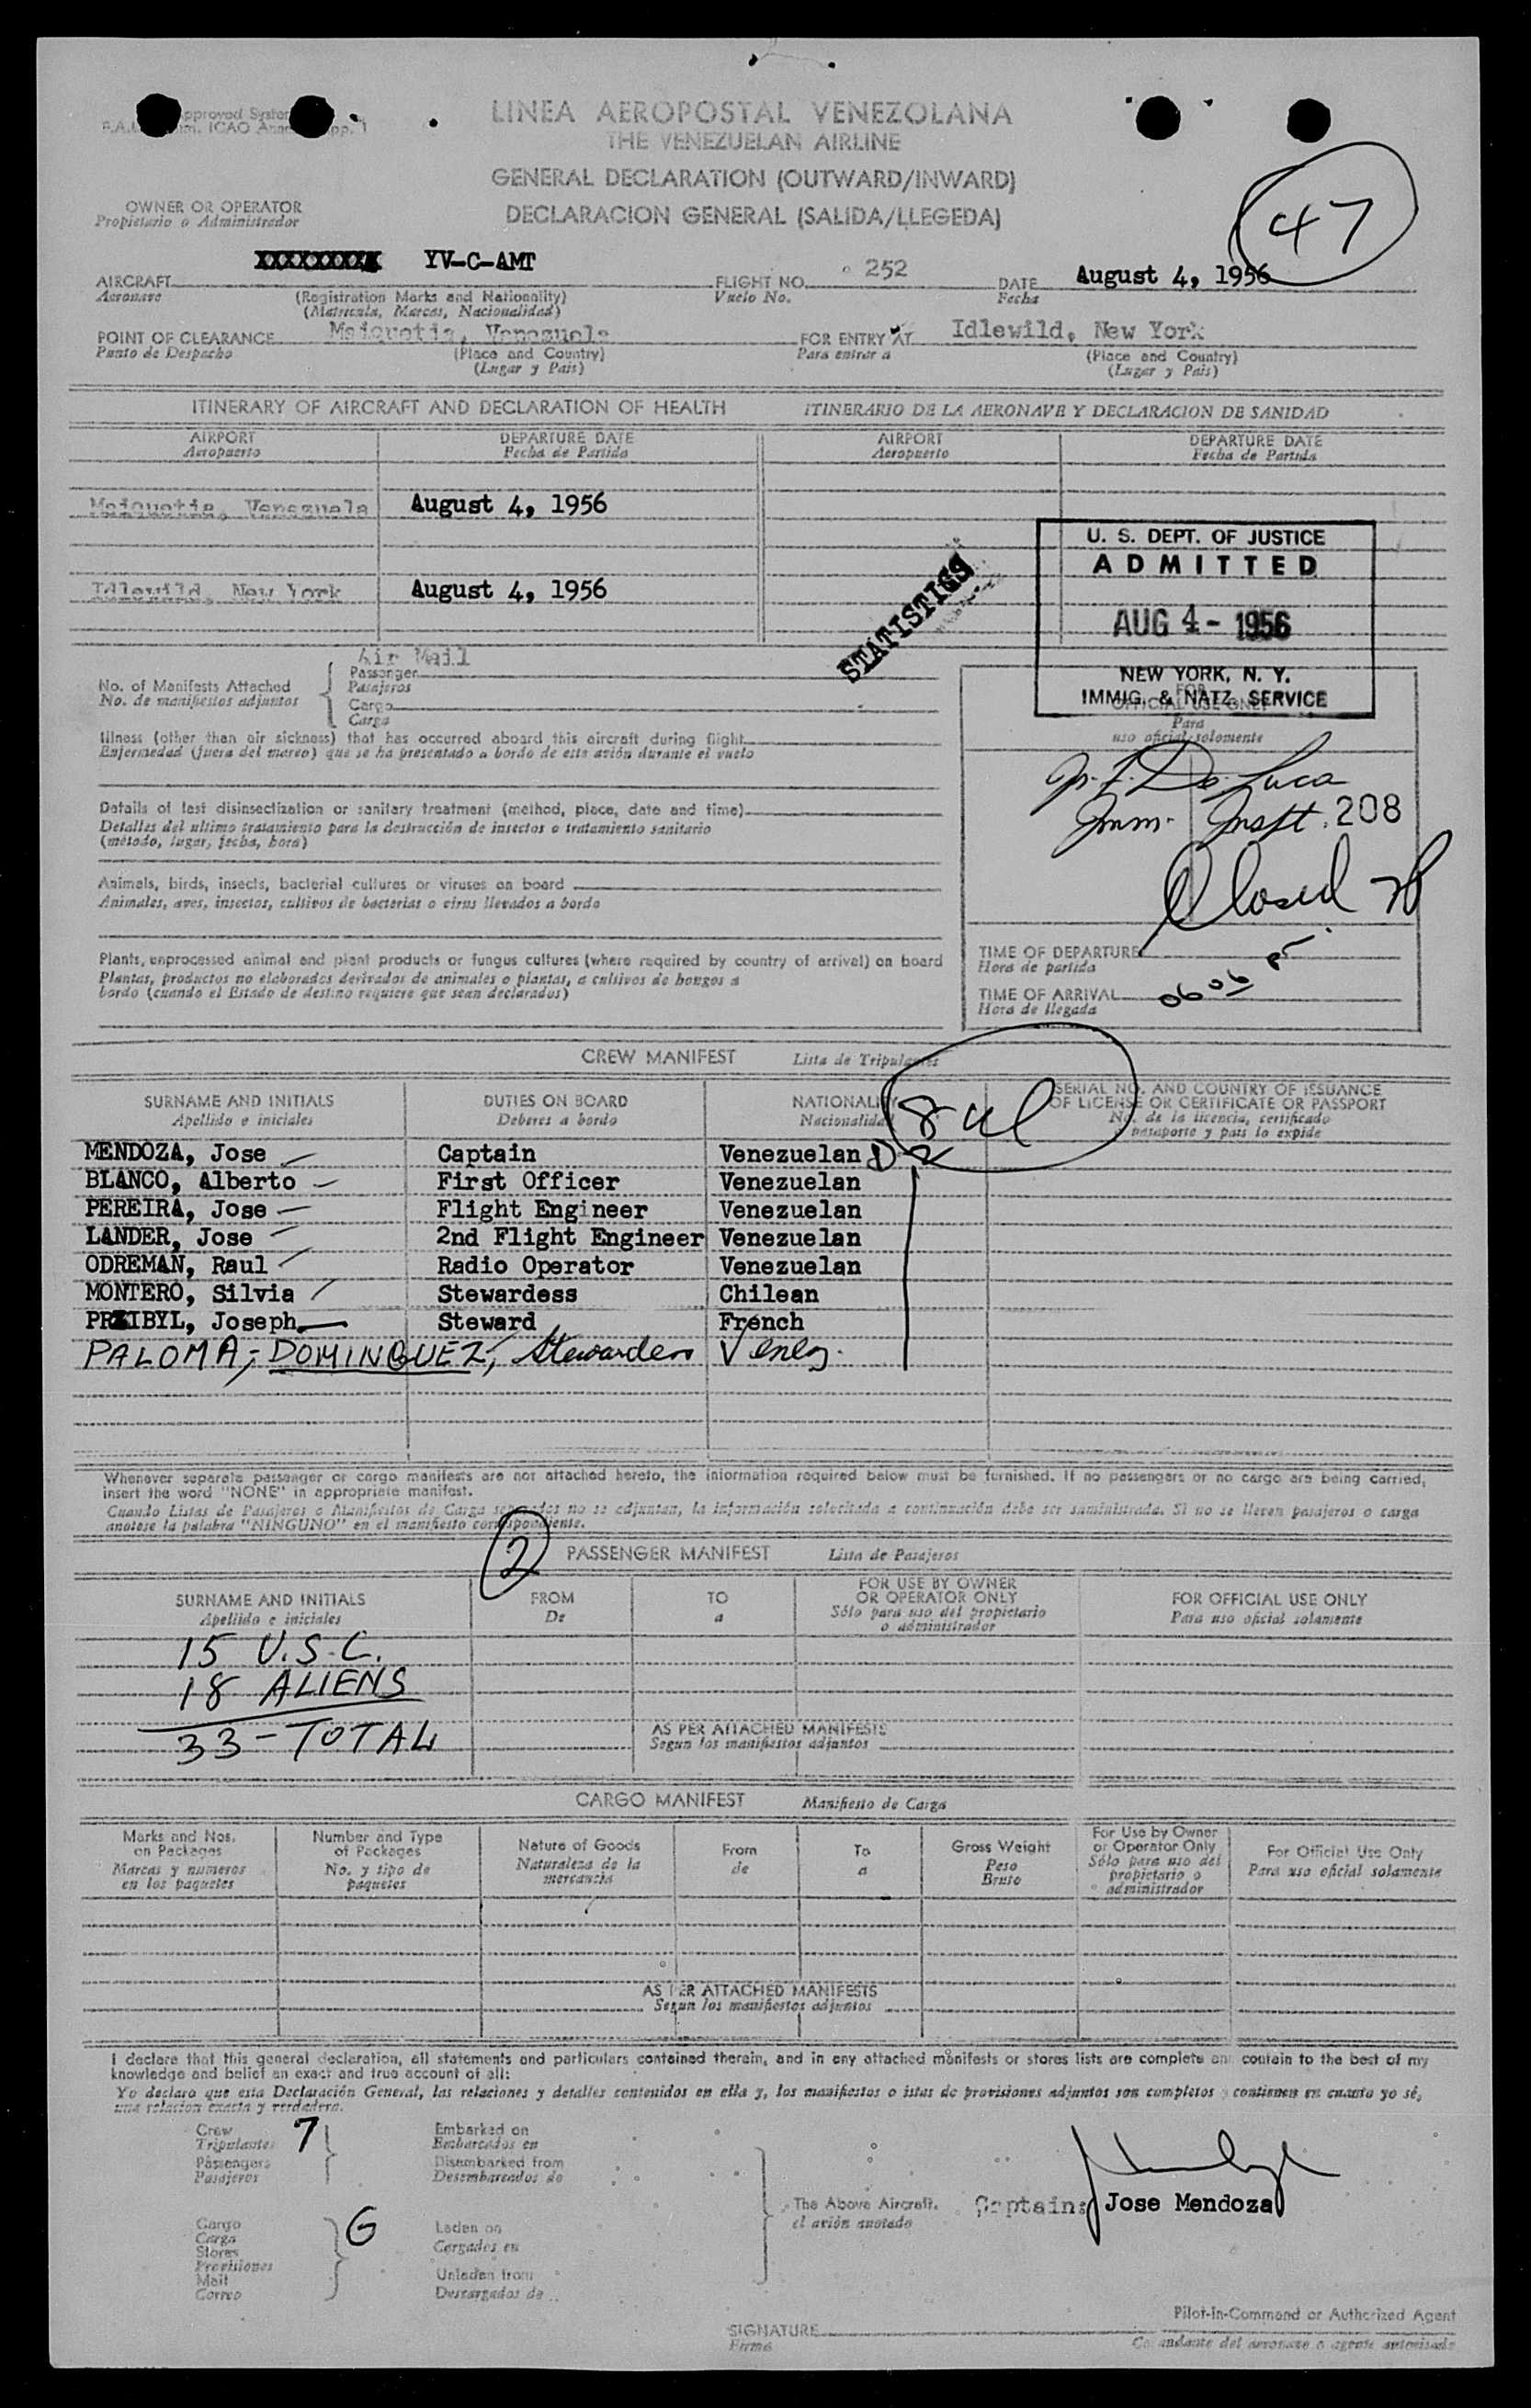 Approved System
LINEA AEROPOSTAL VENEZOLANA
THE VENEZUELAN AIRLINE
GENERAL DECLARATION (OUTWARD/INWARD)
DECLARACION GENERAL (SALIDA/LLEGEDA)
47
OWNER OR OPERATOR
Propietario o Administrador
XXXXXXXXX YV-C-AMT
AIRCRAFT
Aeronave
(Registration Marks and Nationality)
(Matricula, Marcas, Nacionalidad)
FLIGHT NO. 252
Vuelo No.
DATE August 4, 1956
Fecha
POINT OF CLEARANCE Maiquetia, Venezuela
Punto de Despacho
(Place and Country)
(Lugar y Pais)
FOR ENTRY AT Idlewild, New York
Para entrar a
(Place and Country)
(Lugar y Pais)
ITINERARY OF AIRCRAFT AND DECLARATION OF HEALTH ITINERARIO DE LA AERONAVE Y DECLARACION DE SANIDAD
AIRPORT DEPARTURE DATE AIRPORT DEPARTURE DATE
Aeropuerto Fecha de Partida Aeropuerto Fecha de Partida
Maiquetia, Venezuela August 4, 1956
Idlewild, New York August 4, 1956
STATISTICS
U. S. DEPT. OF JUSTICE
ADMITTED
AUG 4 - 1956
NEW YORK, N. Y.
IMMIG. & NATZ. SERVICE
FOR
OFFICIAL USE ONLY
Para
uso oficial solamente
Air Mail
No. of Manifests Attached
No. de manifiestos adjuntos
Passenger
Pasajeros
Cargo
Carga
Illness (other than air sickness) that has occurred aboard this aircraft during flight
Enfermedad (fuera del mareo) que se ha presentado a bordo de este avión durante el vuelo
Details of last disinsectization or sanitary treatment (method, place, date and time)
Detalles del ultimo tratamiento para la destrucción de insectos o tratamiento sanitario
(método, lugar, fecha, hora)
Animals, birds, insects, bacterial cultures or viruses on board
Animales, aves, insectos, cultivos de bacterias o virus llevados a bordo
Plants, unprocessed animal and plant products or fungus cultures (where required by country of arrival) on board
Plantas, productos no elaborados derivados de animales o plantas, o cultivos de hongos a
bordo (cuando el Estado de destino requiere que sean declarados)
De Luca
Imm. Inspt. 208
Closed
TIME OF DEPARTURE
Hora de partida
TIME OF ARRIVAL 0606
Hora de llegada
CREW MANIFEST Lista de Tripulantes
SURNAME AND INITIALS DUTIES ON BOARD NATIONALITY SERIAL NO. AND COUNTRY OF ISSUANCE
OF LICENSE OR CERTIFICATE OR PASSPORT
Apellido e iniciales Deberes a bordo Nacionalidad No. de la licencia, certificado
pasaporte y pais lo expide
MENDOZA, Jose Captain Venezuelan D-2
BLANCO, Alberto First Officer Venezuelan
PEREIRA, Jose Flight Engineer Venezuelan
LANDER, Jose 2nd Flight Engineer Venezuelan
ODREMAN, Raul Radio Operator Venezuelan
MONTERO, Silvia Stewardess Chilean
PRIBYL, Joseph Steward French
PALOMA, DOMINGUEZ, Stewardess Venez.
Whenever separate passenger or cargo manifests are not attached hereto, the information required below must be furnished. If no passengers or no cargo are being carried,
insert the word "NONE" in appropriate manifest.
Cuando Listas de Pasajeros o Manifiestos de Carga separados no se adjuntan, la información solicitada a continuación debe ser suministrada. Si no se lleven pasajeros o carga
anotese la palabra "NINGUNO" en el manifiesto correspondiente.
2
PASSENGER MANIFEST Lista de Pasajeros
SURNAME AND INITIALS FROM TO FOR USE BY OWNER
OR OPERATOR ONLY FOR OFFICIAL USE ONLY
Apellido e iniciales De a Sólo para uso del propietario
o administrador Para uso oficial solamente
15 U.S.C.
18 ALIENS
33 - TOTAL
AS PER ATTACHED MANIFESTS
Segun los manifiestos adjuntos
CARGO MANIFEST Manifiesto de Carga
Marks and Nos.
on Packages
Marcas y numeros
en los paquetes
Number and Type
of Packages
No. y tipo de
paquetes
Nature of Goods
Naturaleza de la
mercancia
From
de
To
a
Gross Weight
Peso
Bruto
For Use by Owner
or Operator Only
Sólo para uso del
propietario o
administrador
For Official Use Only
Para uso oficial solamente
AS PER ATTACHED MANIFESTS
Segun los manifiestos adjuntos
I declare that this general declaration, all statements and particulars contained therein, and in any attached manifests or stores lists are complete and contain to the best of my
knowledge and belief an exact and true account of all:
Yo declaro que esta Declaración General, las relaciones y detalles contenidos en ella y, los manifiestos o istas de provisiones adjuntos son completos y contienen en cuanto yo sé,
una relacion exacta y verdadera.
Crew 7
Tripulantes
Passengers
Pasajeros
Embarked on
Embarcados en
Disembarked from
Desembarcados de
Cargo
Carga
Stores
Provisiones
Mail
Correo
G
Laden on
Cargados en
Unladen from
Descargados de
The Above Aircraft.
el avión anotado
Captain: Jose Mendoza
Pilot-in-Command or Authorized Agent
SIGNATURE
Firma
Comandante del aeronave o agente autorisado